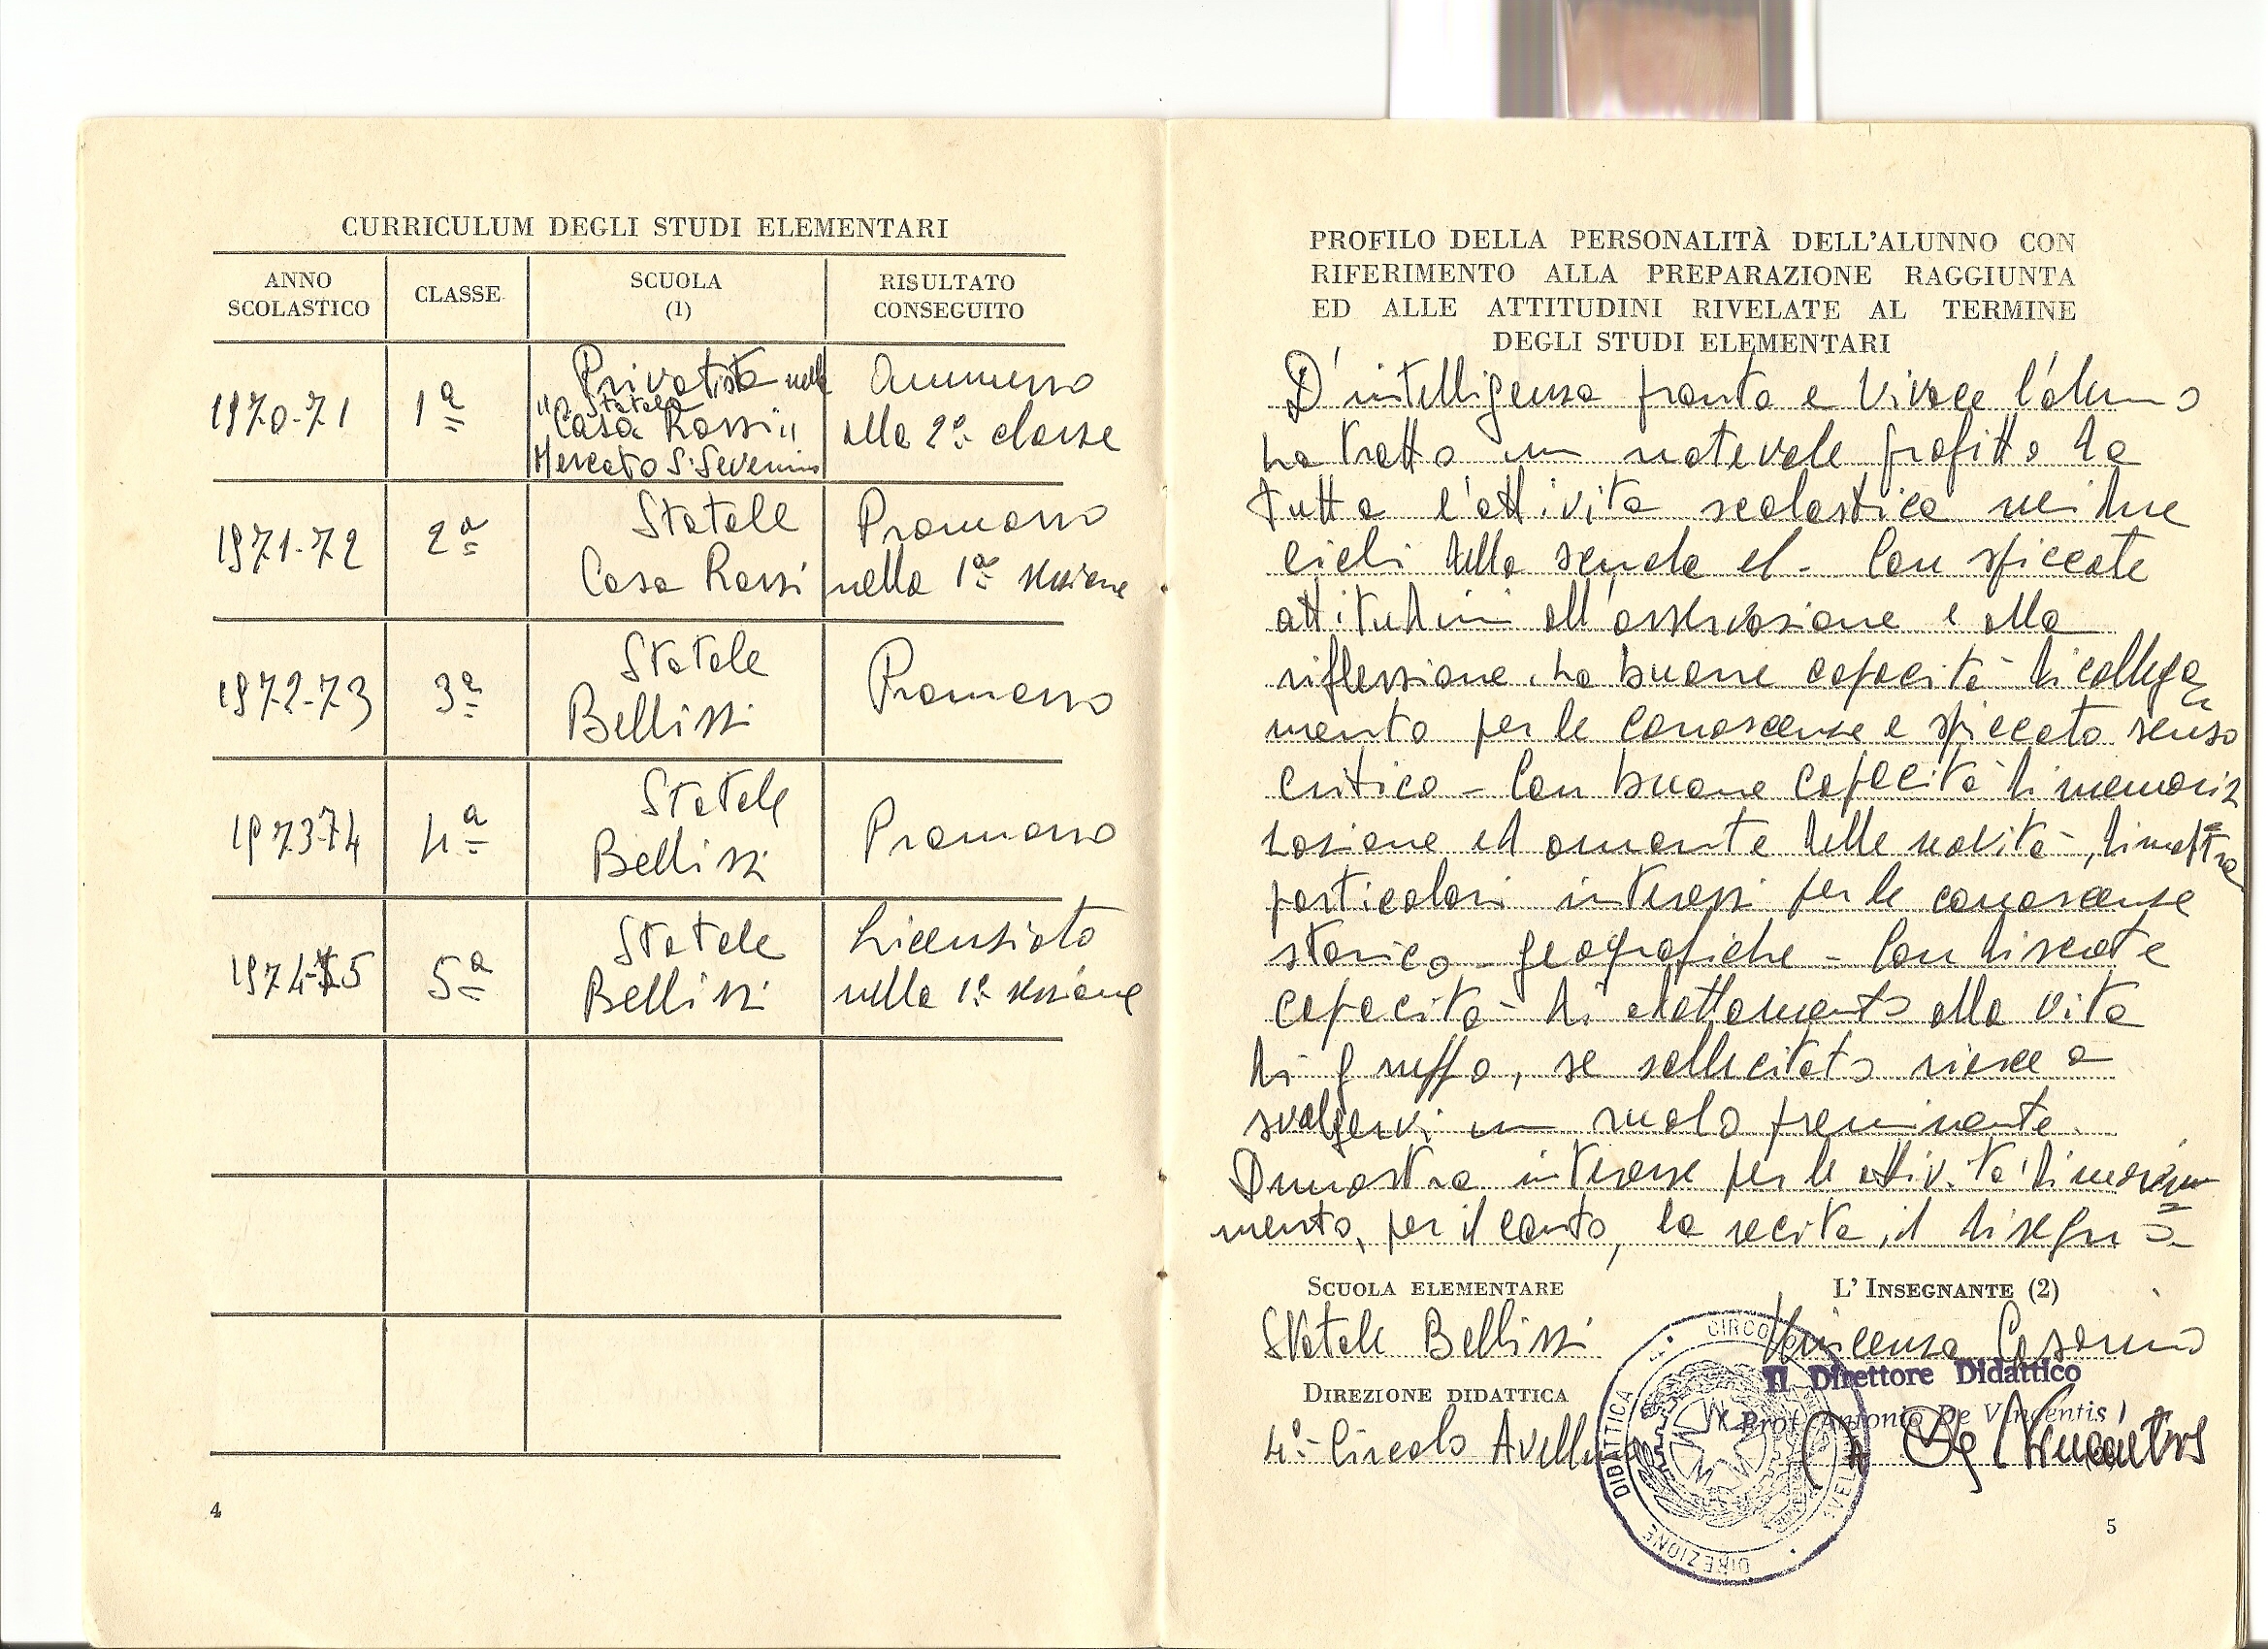 CURRICULUM DEGLI STUDI ELEMENTARI
ANNO SCOLASTICO
CLASSE
SCUOLA (1)
RISULTATO CONSEGUITO
1970-71
1ª
Privatista nella
Statale
"Casa Rossi"
Mercato S. Severino
Ammesso
alla 2ª classe
1971-72
2ª
Statale
Casa Rossi
Promosso
nella 1ª sessione
1972-73
3ª
Statale
Bellizzi
Promosso
1973-74
4ª
Statale
Bellizzi
Promosso
1974-75
5ª
Statale
Bellizzi
Licenziato
nella 1ª sessione
4
PROFILO DELLA PERSONALITÀ DELL'ALUNNO CON
RIFERIMENTO ALLA PREPARAZIONE RAGGIUNTA
ED ALLE ATTITUDINI RIVELATE AL TERMINE
DEGLI STUDI ELEMENTARI
D'intelligenza pronta e vivace l'alunno
ha tratto un notevole profitto da
tutta l'attività scolastica nei due
cicli della scuola el. - Con spiccate
attitudini all'osservazione e alla
riflessione, ha buone capacità di collega
mento per le conoscenze e spiccato senso
critico - Con buone capacità di memoriz
zazione ed amante delle novità, dimostra
particolari interessi per le conoscenze
storico - geografiche - Con discrete
capacità di adattamento alla vita
di gruppo, se sollecitato riesce a
svolgervi un ruolo preminente.
Dimostra interesse per le attività di movi=
mento, per il canto, la recita, il disegno
SCUOLA ELEMENTARE
L'INSEGNANTE (2)
Statale Bellizzi
Vincenza
DIREZIONE DIDATTICA
Il Direttore Didattico
Prof. Antonio De Vincentis
4º Circolo Avellino
A De Vincentis
CIRCOLO
DIREZIONE DIDATTICA
AVELLINO
5